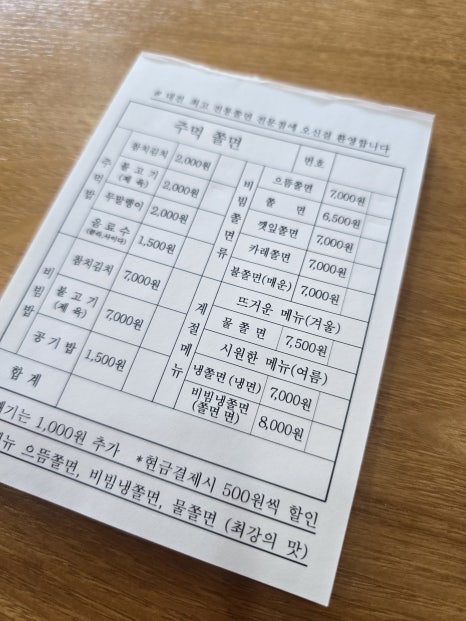 ※ 대전 최고 전통쫄면 전문점에 오신걸 환영합니다
주먹 쫄면 번호
주먹밥
참치김치 2,000원
불고기 (제육) 2,000원
무말랭이 2,000원
음료수 (콜라,사이다) 1,500원
비빔밥
참치김치 7,000원
불고기 (제육) 7,000원
공기밥 1,500원
합계
비빔쫄면류
으뜸쫄면 7,000원
쫄면 6,500원
깻잎쫄면 7,000원
카레쫄면 7,000원
불쫄면(매운) 7,000원
계절메뉴
뜨거운 메뉴(겨울)
물쫄면 7,500원
시원한 메뉴(여름)
냉쫄면 (냉면) 7,000원
비빔냉쫄면 (쫄면 면) 8,000원
1,000원 추가 *현금결제시 500원씩 할인
으뜸쫄면, 비빔냉쫄면, 물쫄면 (최강의 맛)